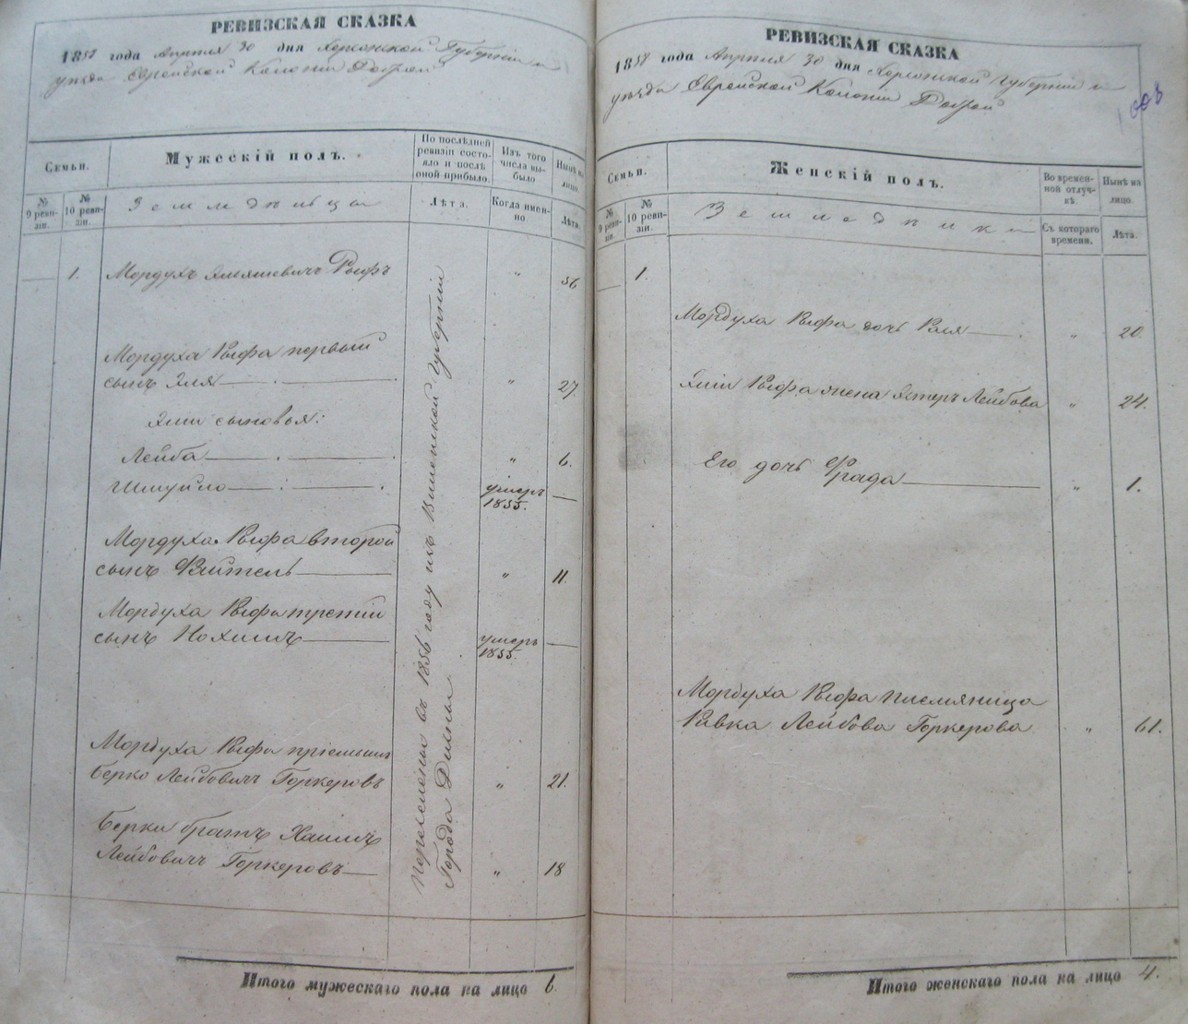 РЕВИЗСКАЯ СКАЗКА
1858 года Апреля 30 дня Херсонской Губерніи и
уѣзда Еврейской Колоніи Доброй
Семьи.
Мужескій полъ.
По послѣдней ревизіи состояло и послѣ оной прибыло.
Изъ того числа выбыло
Нынѣ на лицо.
№ 9 ревизіи.
№ 10 ревизіи.
Земледѣльцы
Лѣта.
Когда именно.
Лѣта.
1. Мордухъ Рыфъ " 56
Мордуха Рыфа первый
сынъ Эля " 27.
Эли сыновья:
Лейба " 6.
Шмуйло умеръ 1855. —
Мордуха Рыфа второй
сынъ " 11.
Мордуха Рыфа третій
сынъ Нохимъ умеръ 1855. —
Мордуха Рыфа пріемышъ
Берко Лейбовичъ Горкеровъ " 21.
Берки братъ Хаимъ
Лейбовичъ Горкеровъ " 18
Переселены въ 1856 году изъ Виленской губерніи
Города Дисны
Итого мужескаго пола на лицо 6.
РЕВИЗСКАЯ СКАЗКА
1858 года Апреля 30 дня Херсонской Губерніи и
уѣзда Еврейской Колоніи Доброй
Семьи.
Женскій полъ.
Во временной отлучкѣ.
Нынѣ на лицо.
№ 9 ревизіи.
№ 10 ревизіи.
Съ котораго времени.
Лѣта.
1.
Мордуха Рыфа дочь " 20.
Эли Рыфа жена Эстеръ Лейбова " 24.
Его дочь Фрада " 1.
Мордуха Рыфа племяница
Ривка Лейбова Горкерова " 61.
Итого женскаго пола на лицо 4.